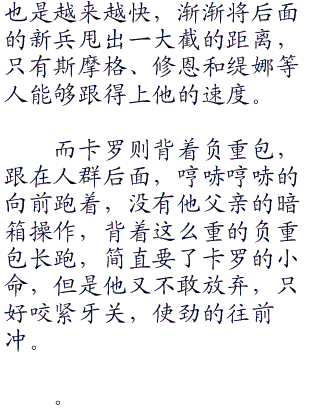 也是越来越快，渐渐将后面
的新兵甩出一大截的距离，
只有斯摩格、修恩和缇娜等
人能够跟得上他的速度。
而卡罗则背着负重包，
跟在人群后面，哼哧哼哧的
向前跑着，没有他父亲的暗
箱操作，背着这么重的负重
包长跑，简直要了卡罗的小
命，但是他又不敢放弃，只
好咬紧牙关，使劲的往前
冲。
。